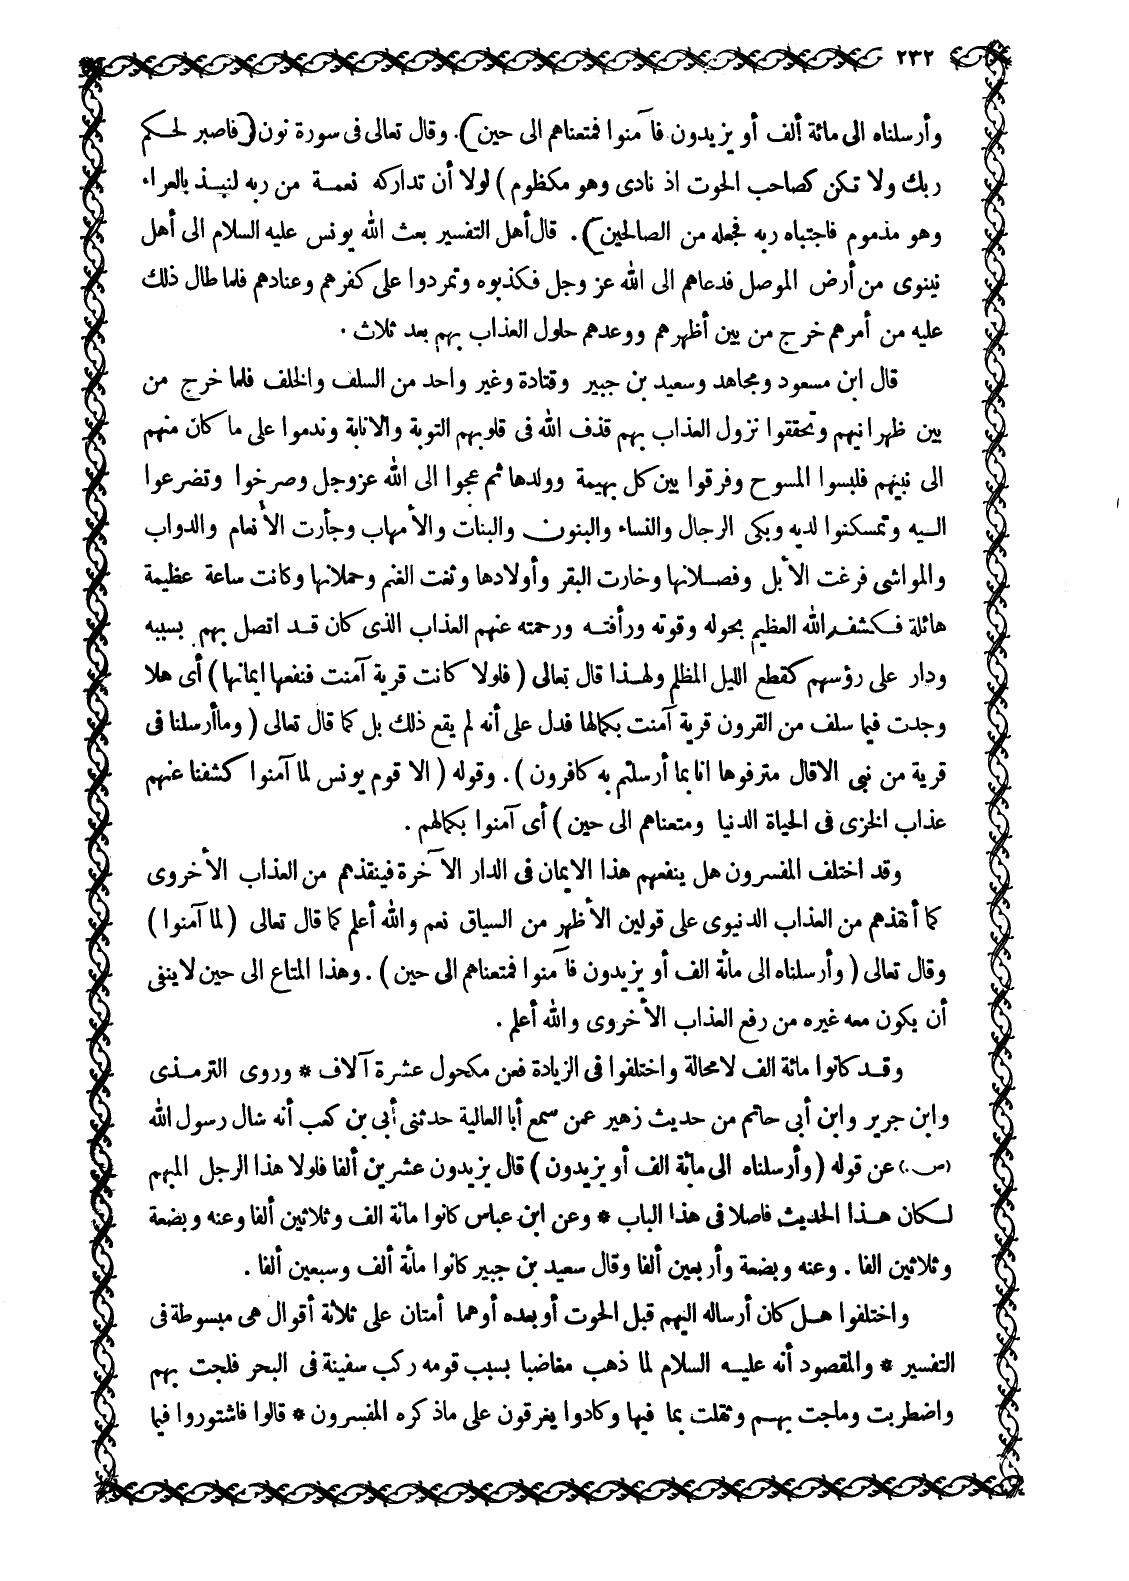 ٢٣٢
وأرسلناه الى مائة ألف أو يزيدون فآمنوا فمتعناهم الى حين). وقال تعالى فى سورة نون (فاصبر لحكم
ربك ولا تكن كصاحب الحوت اذ نادى وهو مكظوم) لولا أن تداركه نعمة من ربه لنبذ بالعراء
وهو مذموم فاجتباه ربه فجعله من الصالحين). قال أهل التفسير بعث الله يونس عليه السلام الى أهل
نينوى من أرض الموصل فدعاهم الى الله عز وجل فكذبوه وتمردوا على كفرهم وعنادهم فلما طال ذلك
عليه من أمرهم خرج من بين أظهرهم ووعدهم حلول العذاب بهم بعد ثلاث .
قال ابن مسعود ومجاهد وسعيد بن جبير وقتادة وغير واحد من السلف والخلف فلما خرج من
بين ظهرانيهم وتحققوا نزول العذاب بهم قذف الله فى قلوبهم التوبة والانابة وندموا على ما كان منهم
الى نبيهم فلبسوا المسوح وفرقوا بين كل بهيمة وولدها ثم عجوا الى الله عز وجل وصرخوا وتضرعوا
اليه وتمسكنوا لديه وبكى الرجال والنساء والبنون والبنات والأمهاب وجأرت الأنعام والدواب
والمواشى فرغت الأبل وفصلانها وخارت البقر وأولادها وثغت الغنم وحملانها وكانت ساعة عظيمة
هائلة فكشف الله العظيم بحوله وقوته ورأفته ورحمته عنهم العذاب الذى كان قد اتصل بهم بسببه
ودار على رؤسهم كقطع الليل المظلم ولهذا قال تعالى ( فلولا كانت قرية آمنت فنفعها ايمانها ) أى هلا
وجدت فيما سلف من القرون قرية آمنت بكمالها فدل على أنه لم يقع ذلك بل كما قال تعالى ( وما أرسلنا فى
قرية من نبى الا قال مترفوها انا بما أرسلتم به كافرون ) . وقوله ( الا قوم يونس لما آمنوا كشفنا عنهم
عذاب الخزى فى الحياة الدنيا ومتعناهم الى حين ) أى آمنوا بكمالهم .
وقد اختلف المفسرون هل ينفعهم هذا الايمان فى الدار الآخرة فينقذهم من العذاب الأخروى
كما أنقذهم من العذاب الدنيوى على قولين الأظهر من السياق نعم والله أعلم كما قال تعالى ( لما آمنوا )
وقال تعالى ( وأرسلناه الى مائة الف أو يزيدون فآمنوا فمتعناهم الى حين ) . وهذا المتاع الى حين لا ينفى
أن يكون معه غيره من رفع العذاب الأخروى والله أعلم .
وقد كانوا مائة الف لا محالة واختلفوا فى الزيادة فعن مكحول عشرة آلاف * وروى الترمذى
وابن جرير وابن أبي حاتم من حديث زهير عمن سمع أبا العالية حدثنى أبي بن كعب أنه سأل رسول الله
(ص.) عن قوله ( وأرسلناه الى مائة الف أو يزيدون ) قال يزيدون عشرين ألفا فلولا هذا الرجل المبهم
لكان هذا الحديث فاصلا فى هذا الباب * وعن ابن عباس كانوا مائة الف وثلاثين ألفا وعنه وبضعة
وثلاثين الفا . وعنه وبضعة وأربعين ألفا وقال سعيد بن جبير كانوا مائة ألف وسبعين ألفا .
واختلفوا هل كان أرساله اليهم قبل الحوت أو بعده أو هما أمتان على ثلاثة أقوال هى مبسوطة فى
التفسير * والمقصود أنه عليه السلام لما ذهب مغاضبا بسبب قومه ركب سفينة فى البحر فلجت بهم
واضطربت وماجت بهم وثقلت بما فيها وكادوا يغرقون على ما ذكره المفسرون * قالوا فاشتوروا فيما